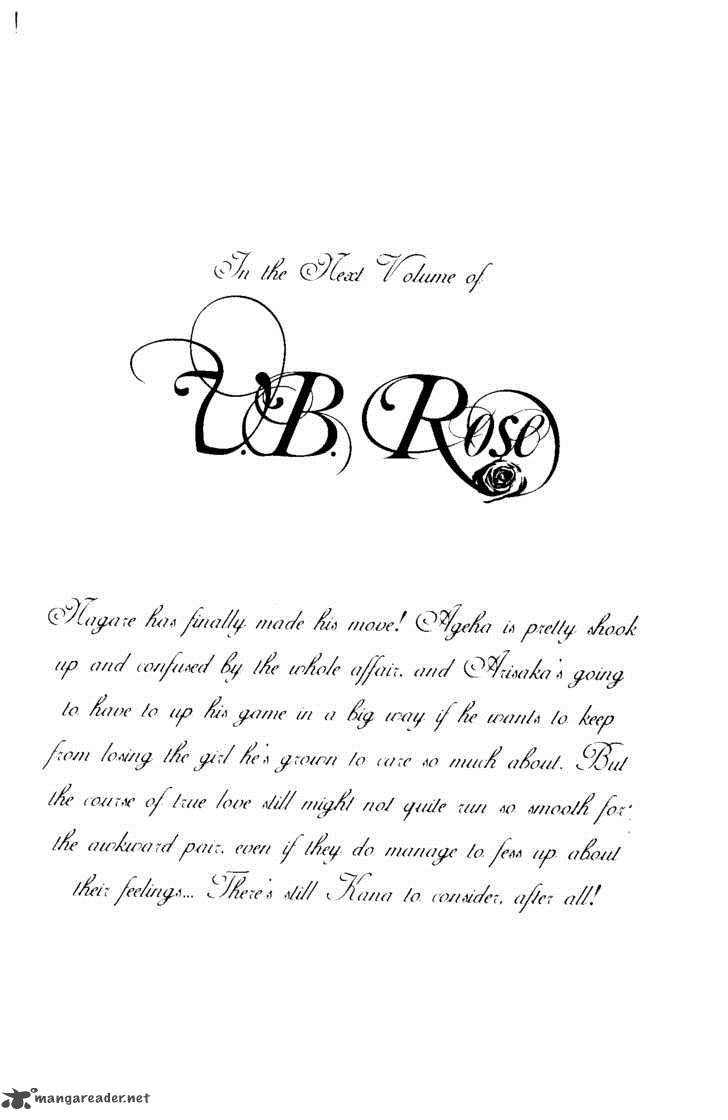 In the Next Volume of
V.B. Rose
Nagare has finally made his move! Ageha is pretty shook
up and confused by the whole affair, and Arisaka's going
to have to up his game in a big way if he wants to keep
from losing the girl he's grown to care so much about. But
the course of true love still might not quite run so smooth for
the awkward pair, even if they do manage to fess up about
their feelings... There's still Kana to consider, after all!
mangareader.net